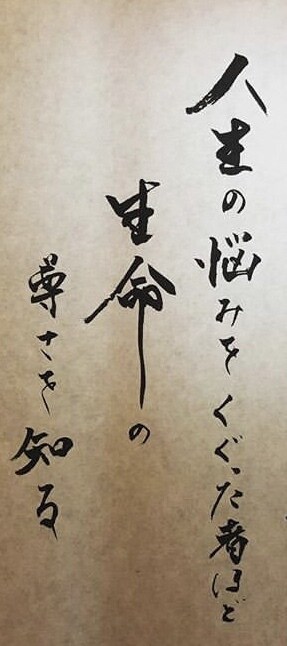 人生の悩みをくぐった者ほど
生命の
尊さを知る